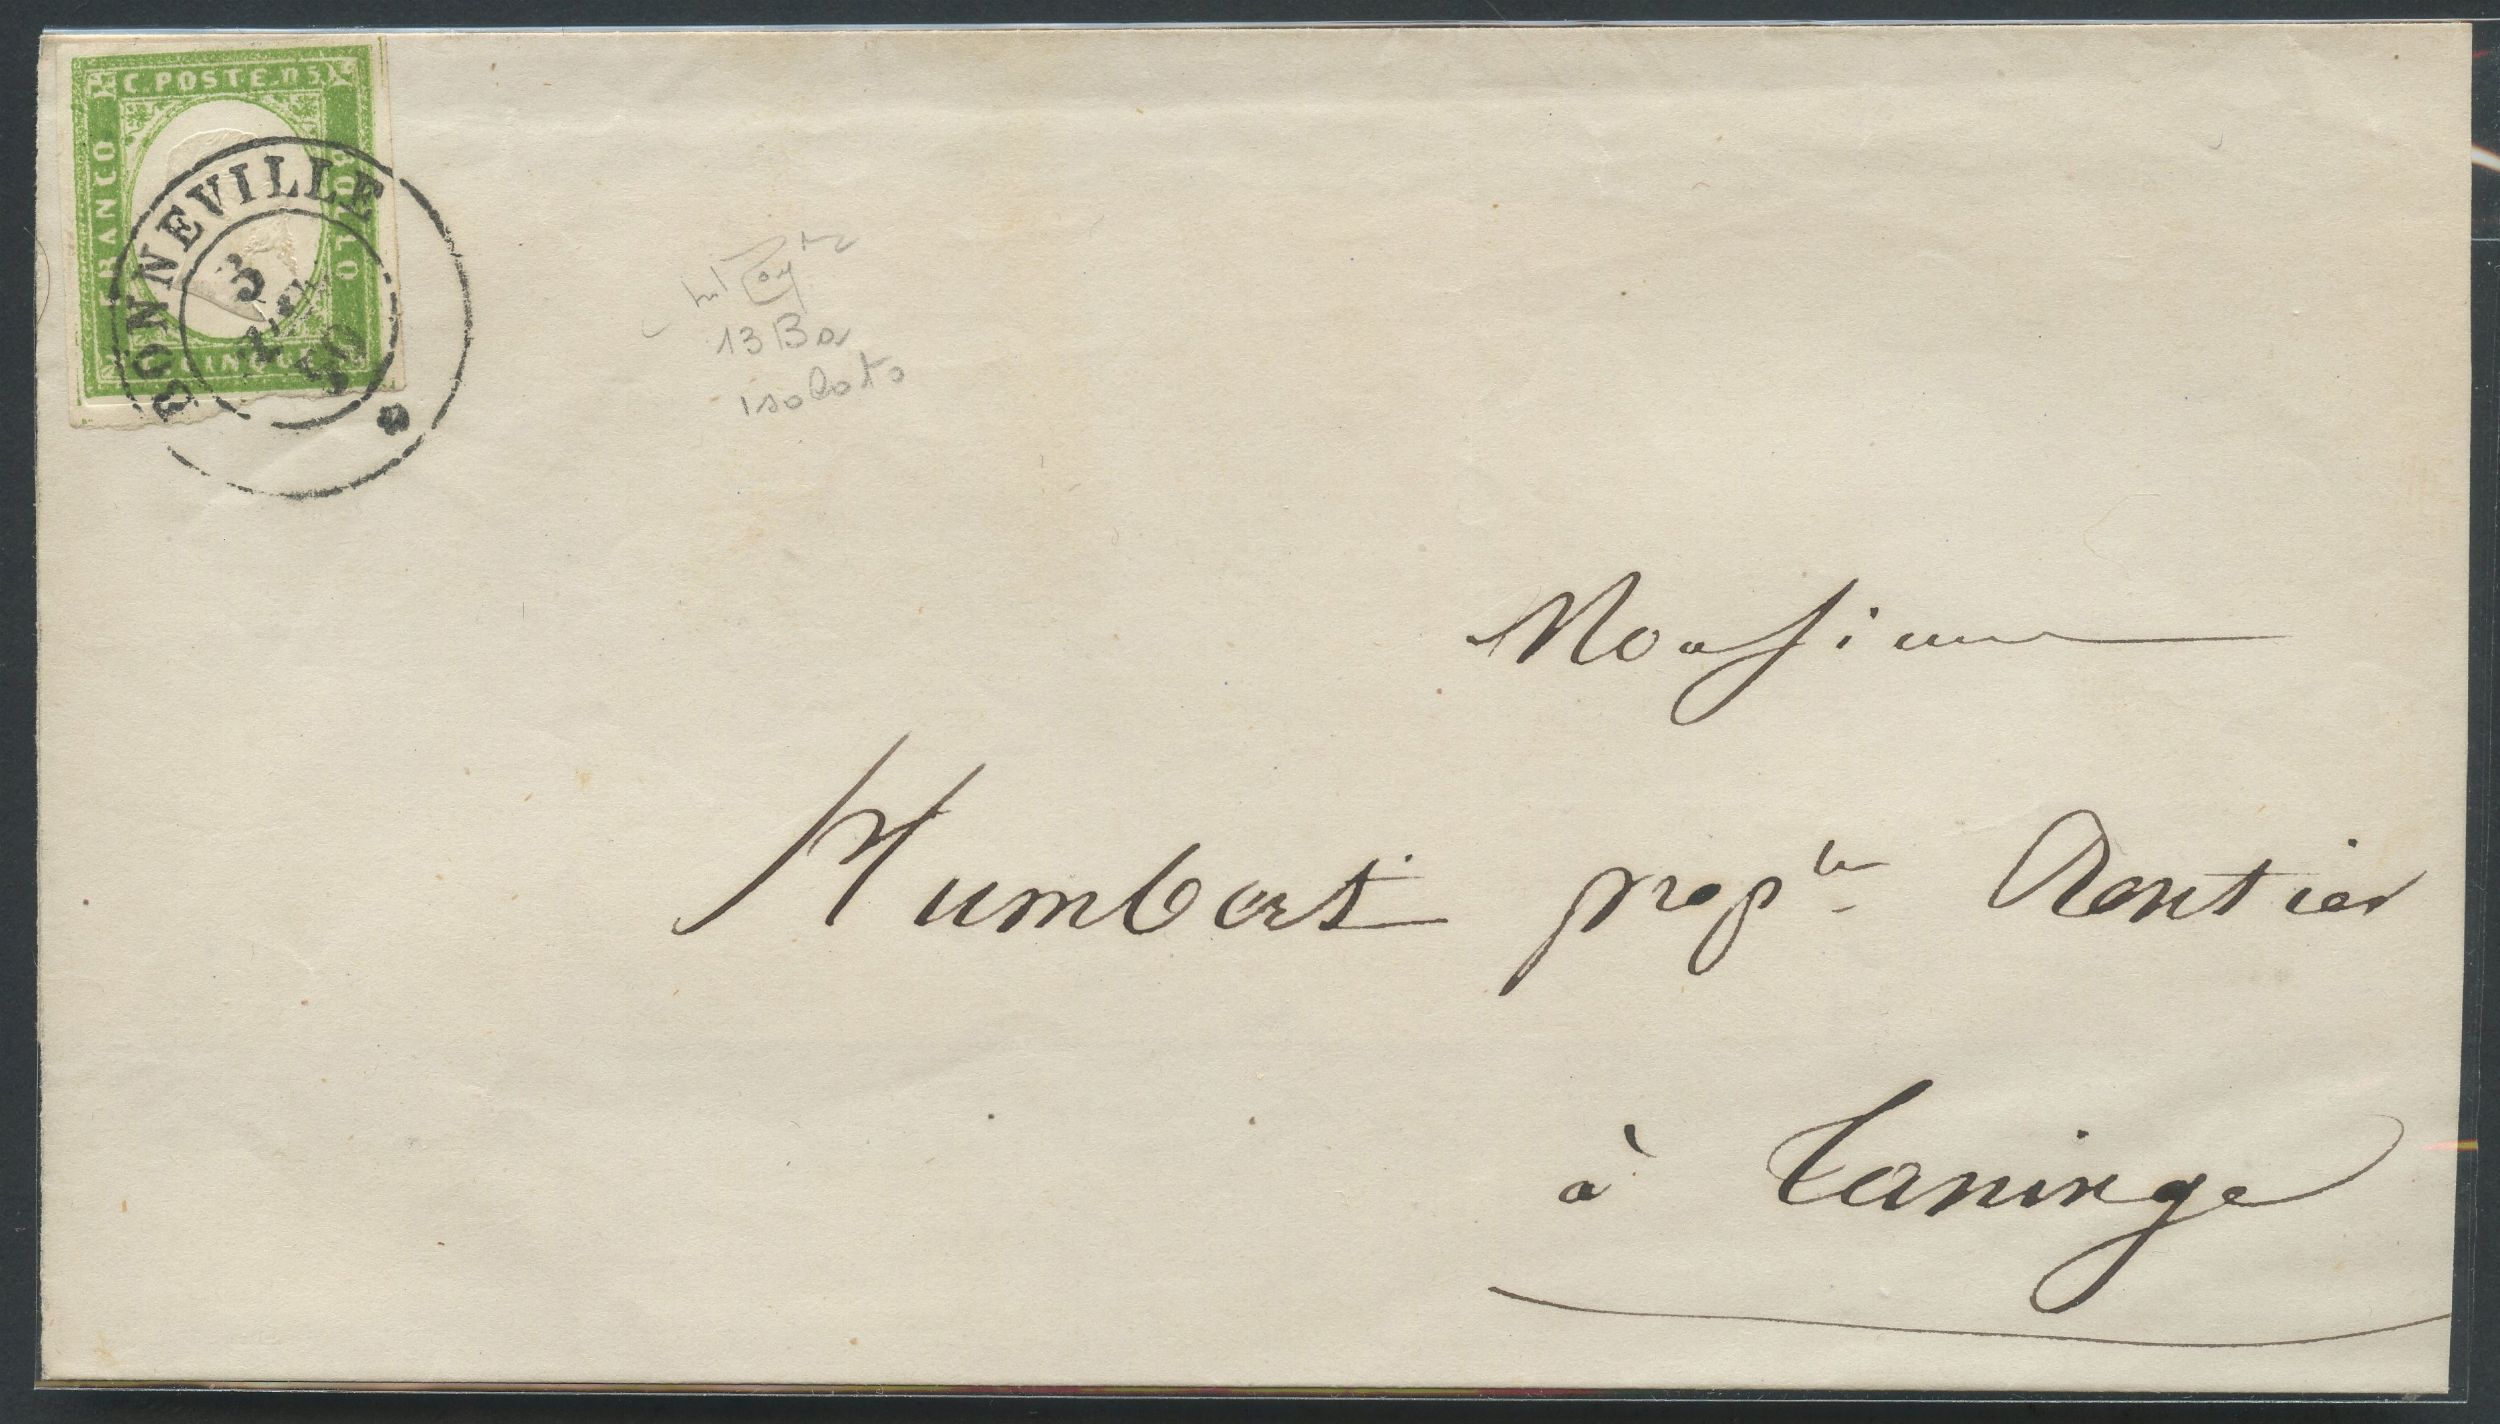 C. POSTE. C 5
FRANCO
BOLLO
CINQUE
BONNEVILLE
3
59
13Ba
isolato
Monsieur
Humbert prop.re Rentier
à Taninge